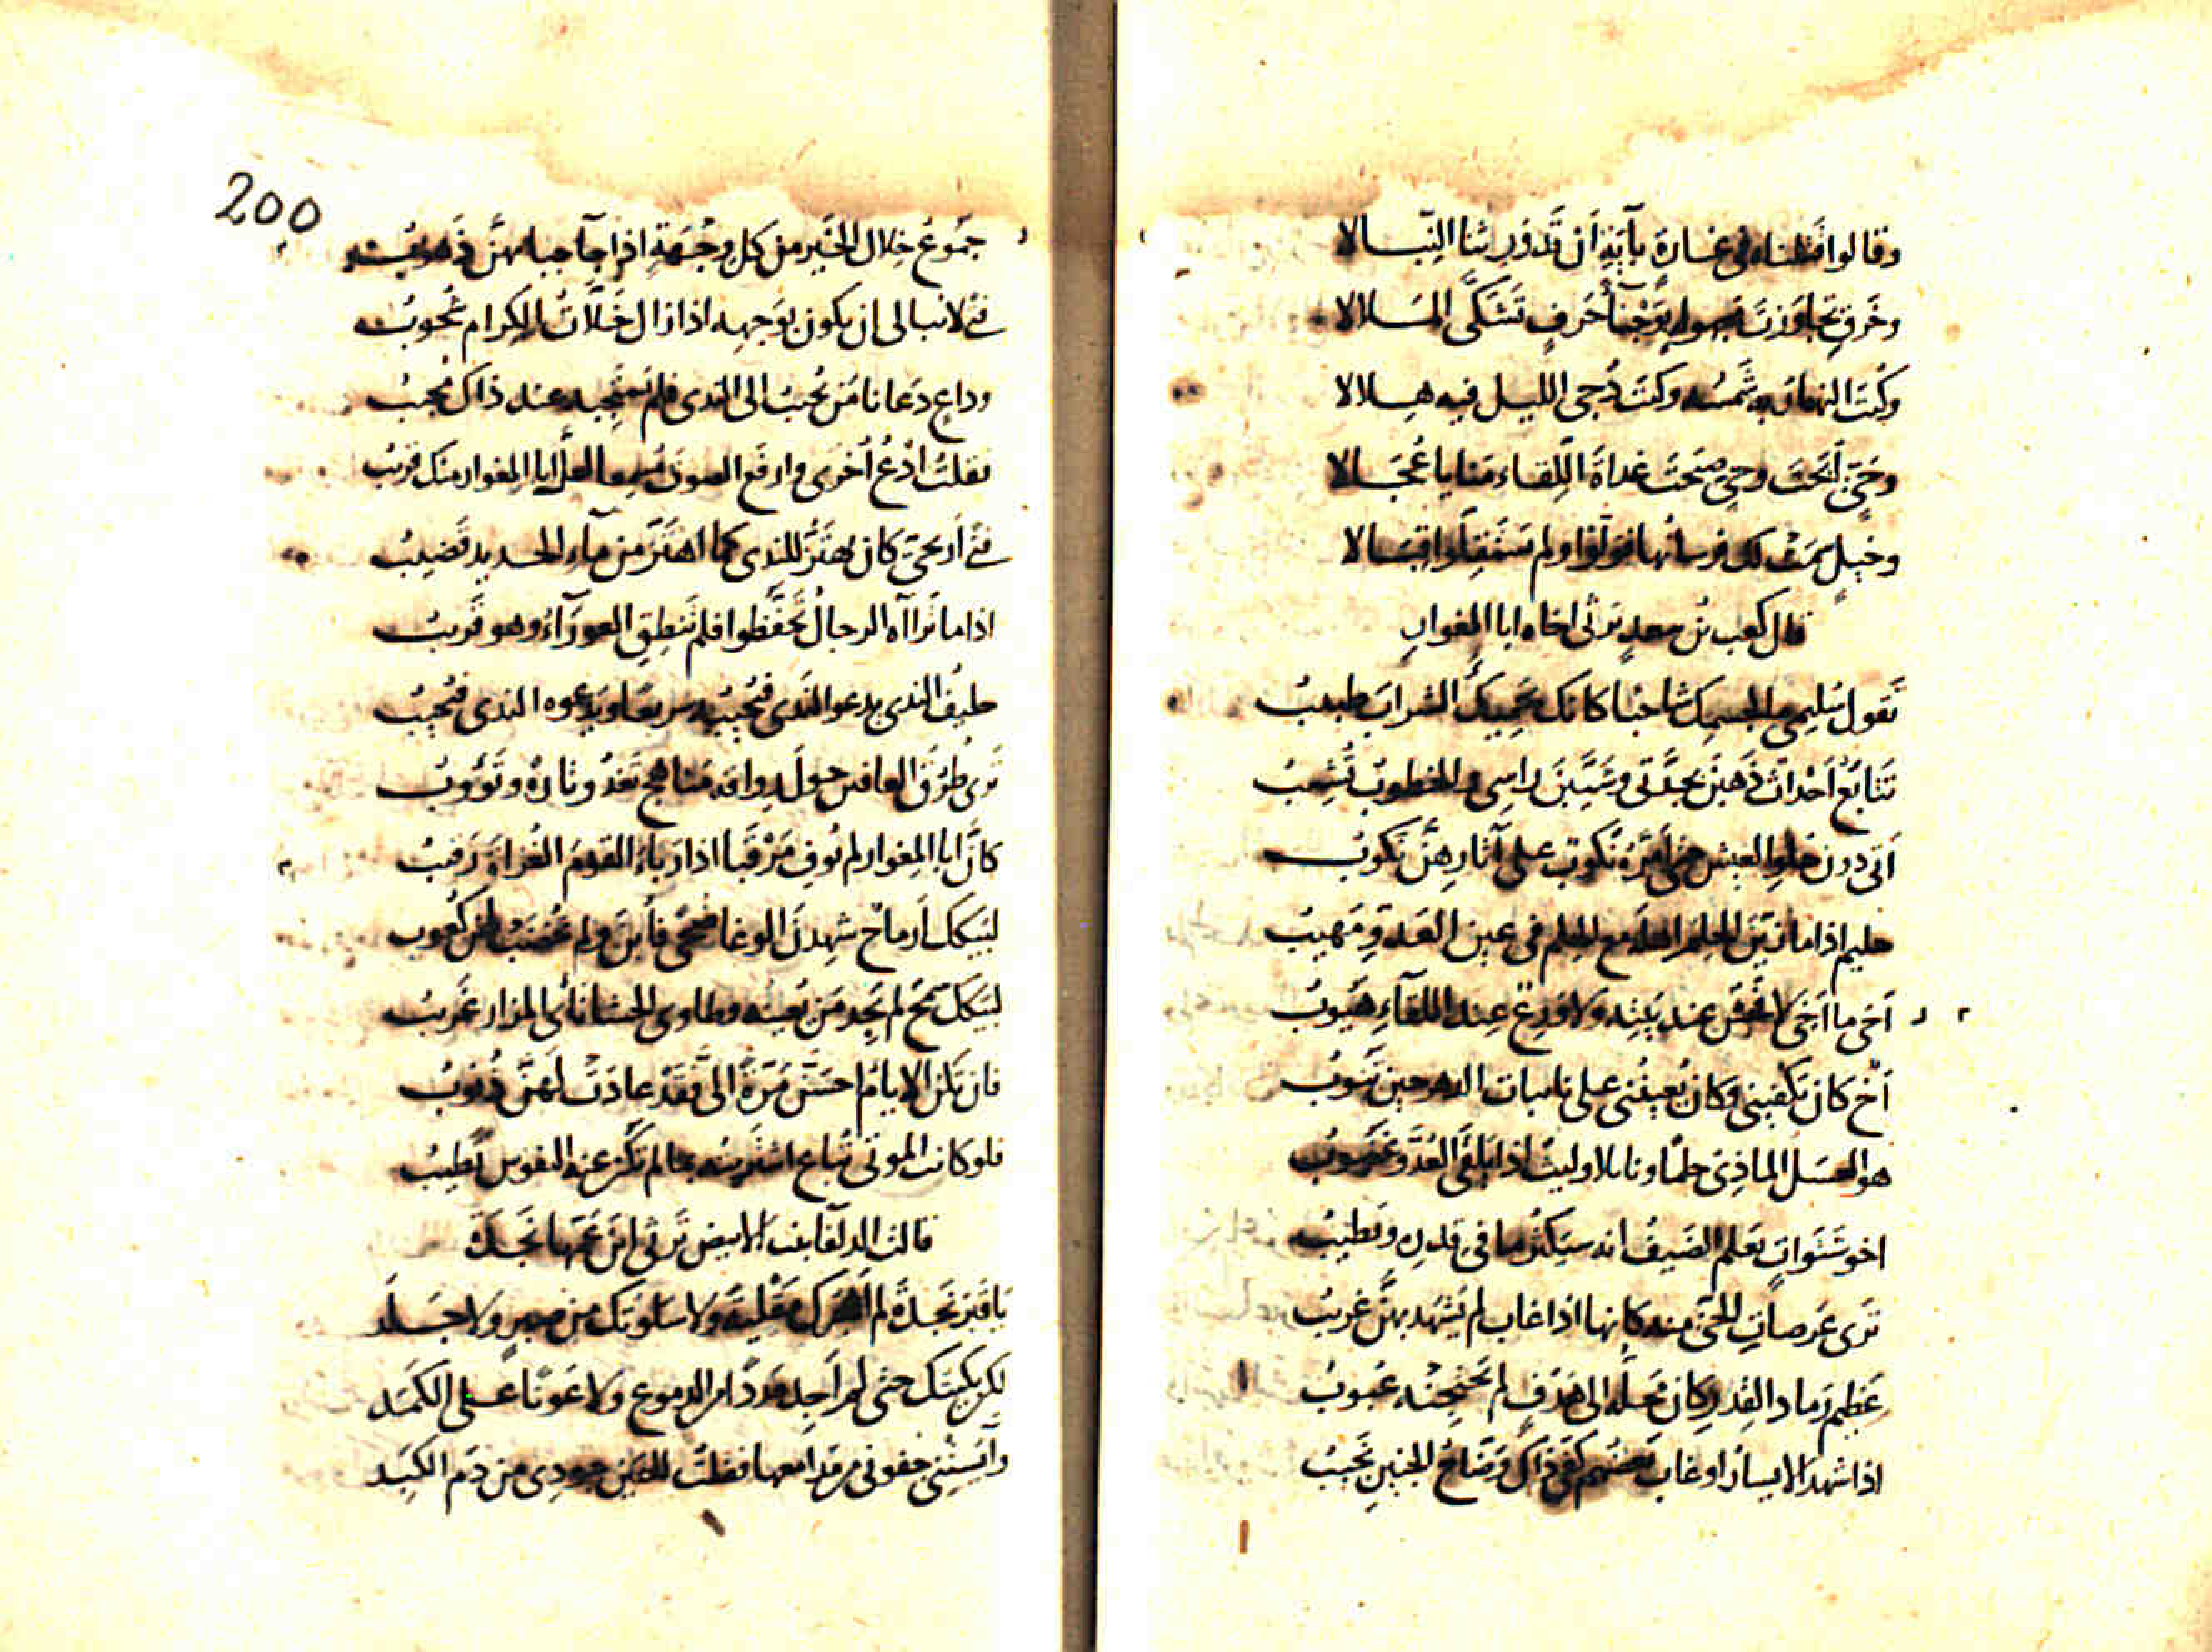 وقالوا قتلناه في غارة بآية أن قد ورثنا النبالا
وخرق تجاوزت مجهوله بوجناء حرف تشكى الكلالا
وكنت النهار به شمسه وكنت دجى الليل فيه هلالا
وحي أبحت وحي صبحت غداة اللقاء منايا عجالا
وخيل سمت لك فرسانها فولوا ولم يستقلوا قبالا
قال كعب بن سعد يرثى اخاه ابا المغوار
تقول سليمى ما لجسمك شاحبا كانك يحميك الشراب طبيب
تتابع أحداث ذهبن بجدتي وشيبن راسي والخطوب تشيب
أتى دون حلو العيش حتى أمره نكوب على آثارهن نكوب
حليم اذا ما زين الحلم اهله مع الحلم في عين العدو مهيب
أخي ما أخي لا فاحش عند بيته ولا ورع عند اللقاء هيوب
أخ كان يكفيني وكان يعينني على نائبات الدهر حين تنوب
هو العسل الماذي حلما ونائلا وليث اذا يلقى العدو غضوب
اخو شتوات يعلم الضيف انه سيكثر ما في قدره ويطيب
ترى عرصات الحي منه كانها اذا غاب لم يشهد بهن غريب
عظيم رماد القدر كان محله الى هدف لم تحتجنه غيوب
اذا شهد الايسار او غاب بعضهم كفى ذاك وضاح الجبين نجيب
200
جموع خلال الخير من كل وجهة اذا جاء جياء بهن ذهوب
فتى لا يبالي ان يكون بوجهه اذا زال خلات الكرام شحوب
وداع دعانا من يجيب الى الندى فلم يستجبه عند ذاك مجيب
فقلت ادع أخرى وارفع الصوت مسمعا لعل ابا المغوار منك قريب
فتى أريحي كان يهتز للندى كما اهتز من ماء الحديد قضيب
اذا ما ترااه الرجال تحفظوا فلم تنطق العوراء وهو قريب
حليف الندى يدعو الندى فيجيبه سريعا ويدعوه الندى فيجيب
ترى طرق العافين حول رواقه مناهج تغدو تارة وتؤوب
كان ابا المغوار لم يوف مرقبا اذا رباء القوم الغزاة رقيب
ليبكك أرماح شهدن الوغا ضحى فأبن ولم تخضب لهن كعوب
ليبكك شيخ لم يجد من يعينه وطاوى الحشا نائى المزار غريب
فان تكن الايام احسن مرة الي فقد عادت لهن ذنوب
فلو كانت الموتى تباع اشتريته بما لم تكن عنه النفوس تطيب
قالت الدلفا بنت الابيض ترثي ابن عمها نجدة
يا قبر نجدة لم أهجرك مقلية ولا سلوتك من صبر ولا جلد
لكن بكيتك حتى لم أجد مددا من الدموع ولا عونا على الكمد
وآيستني جفوني من مدامعها فقلت للعين جودي من دم الكبد